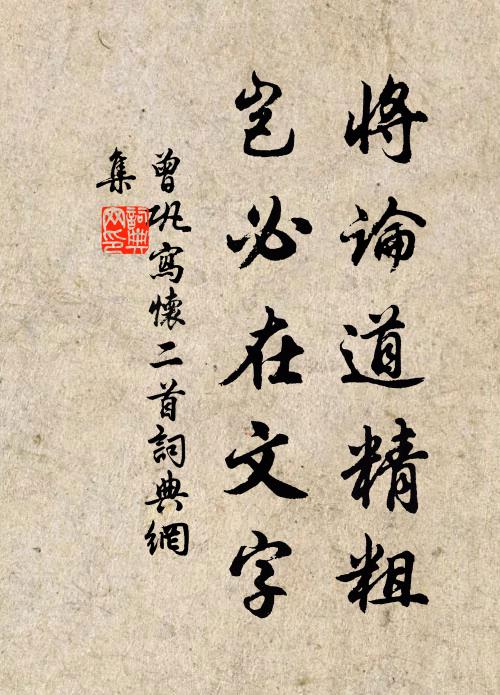 将論道精粗
豈必在文字
曾巩寫懷二首詞典網
集
詞典
网印